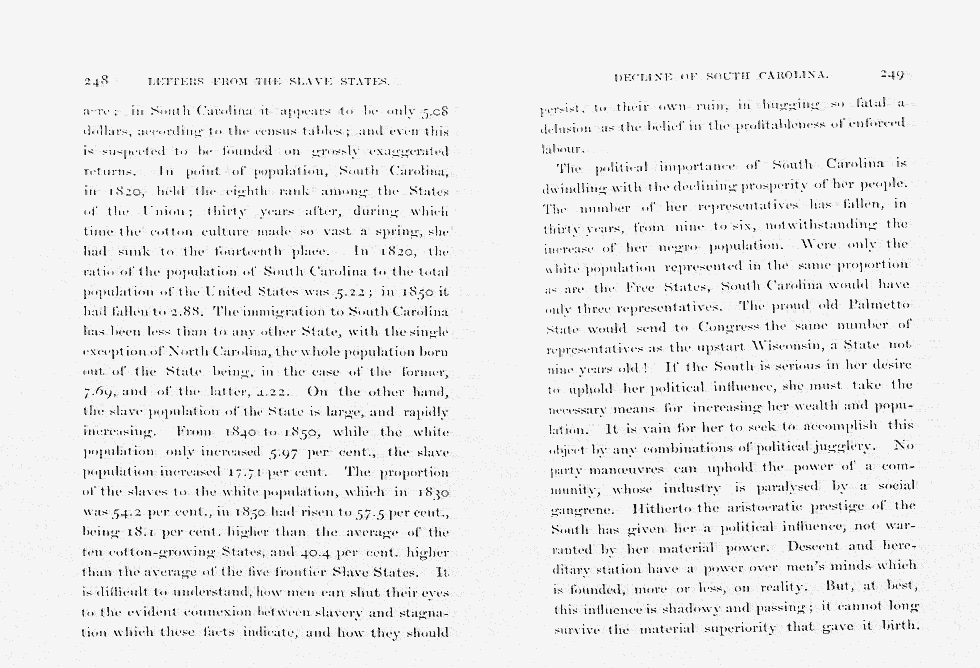 248 LETTERS FROM THE SLAVE STATES.
acre; in South Carolina it appears to be only 5.08
dollars, according to the census tables; and even this
is suspected to be founded on grossly exaggerated
returns. In point of population, South Carolina,
in 1820, held the eighth rank among the States
of the Union; thirty years after, during which
time the cotton culture made so vast a spring, she
had sunk to the fourteenth place. In 1820, the
ratio of the population of South Carolina to the total
population of the United States was 5.22; in 1850 it
had fallen to 2.88. The immigration to South Carolina
has been less than to any other State, with the single
exception of North Carolina, the whole population born
out of the State being, in the case of the former,
7.69, and of the latter, 4.22. On the other hand,
the slave population of the State is large, and rapidly
increasing. From 1840 to 1850, while the white
population only increased 5.97 per cent., the slave
population increased 17.71 per cent. The proportion
of the slaves to the white population, which in 1830
was 54.2 per cent., in 1850 had risen to 57.5 per cent.,
being 18.1 per cent. higher than the average of the
ten cotton-growing States, and 40.4 per cent. higher
than the average of the five frontier Slave States. It
is difficult to understand, how men can shut their eyes
to the evident connexion between slavery and stagna-
tion which these facts indicate, and how they should
DECLINE OF SOUTH CAROLINA. 249
persist, to their own ruin, in hugging so fatal a
delusion as the belief in the profitableness of enforced
labour.
The political importance of South Carolina is
dwindling with the declining prosperity of her people.
The number of her representatives has fallen, in
thirty years, from nine to six, notwithstanding the
increase of her negro population. Were only the
white population represented in the same proportion
as are the Free States, South Carolina would have
only three representatives. The proud old Palmetto
State would send to Congress the same number of
representatives as the upstart Wisconsin, a State not
nine years old! If the South is serious in her desire
to uphold her political influence, she must take the
necessary means for increasing her wealth and popu-
lation. It is vain for her to seek to accomplish this
object by any combinations of political jugglery. No
party manœuvres can uphold the power of a com-
munity, whose industry is paralysed by a social
gangrene. Hitherto the aristocratic prestige of the
South has given her a political influence, not war-
ranted by her material power. Descent and here-
ditary station have a power over men's minds which
is founded, more or less, on reality. But, at best,
this influence is shadowy and passing; it cannot long
survive the material superiority that gave it birth.